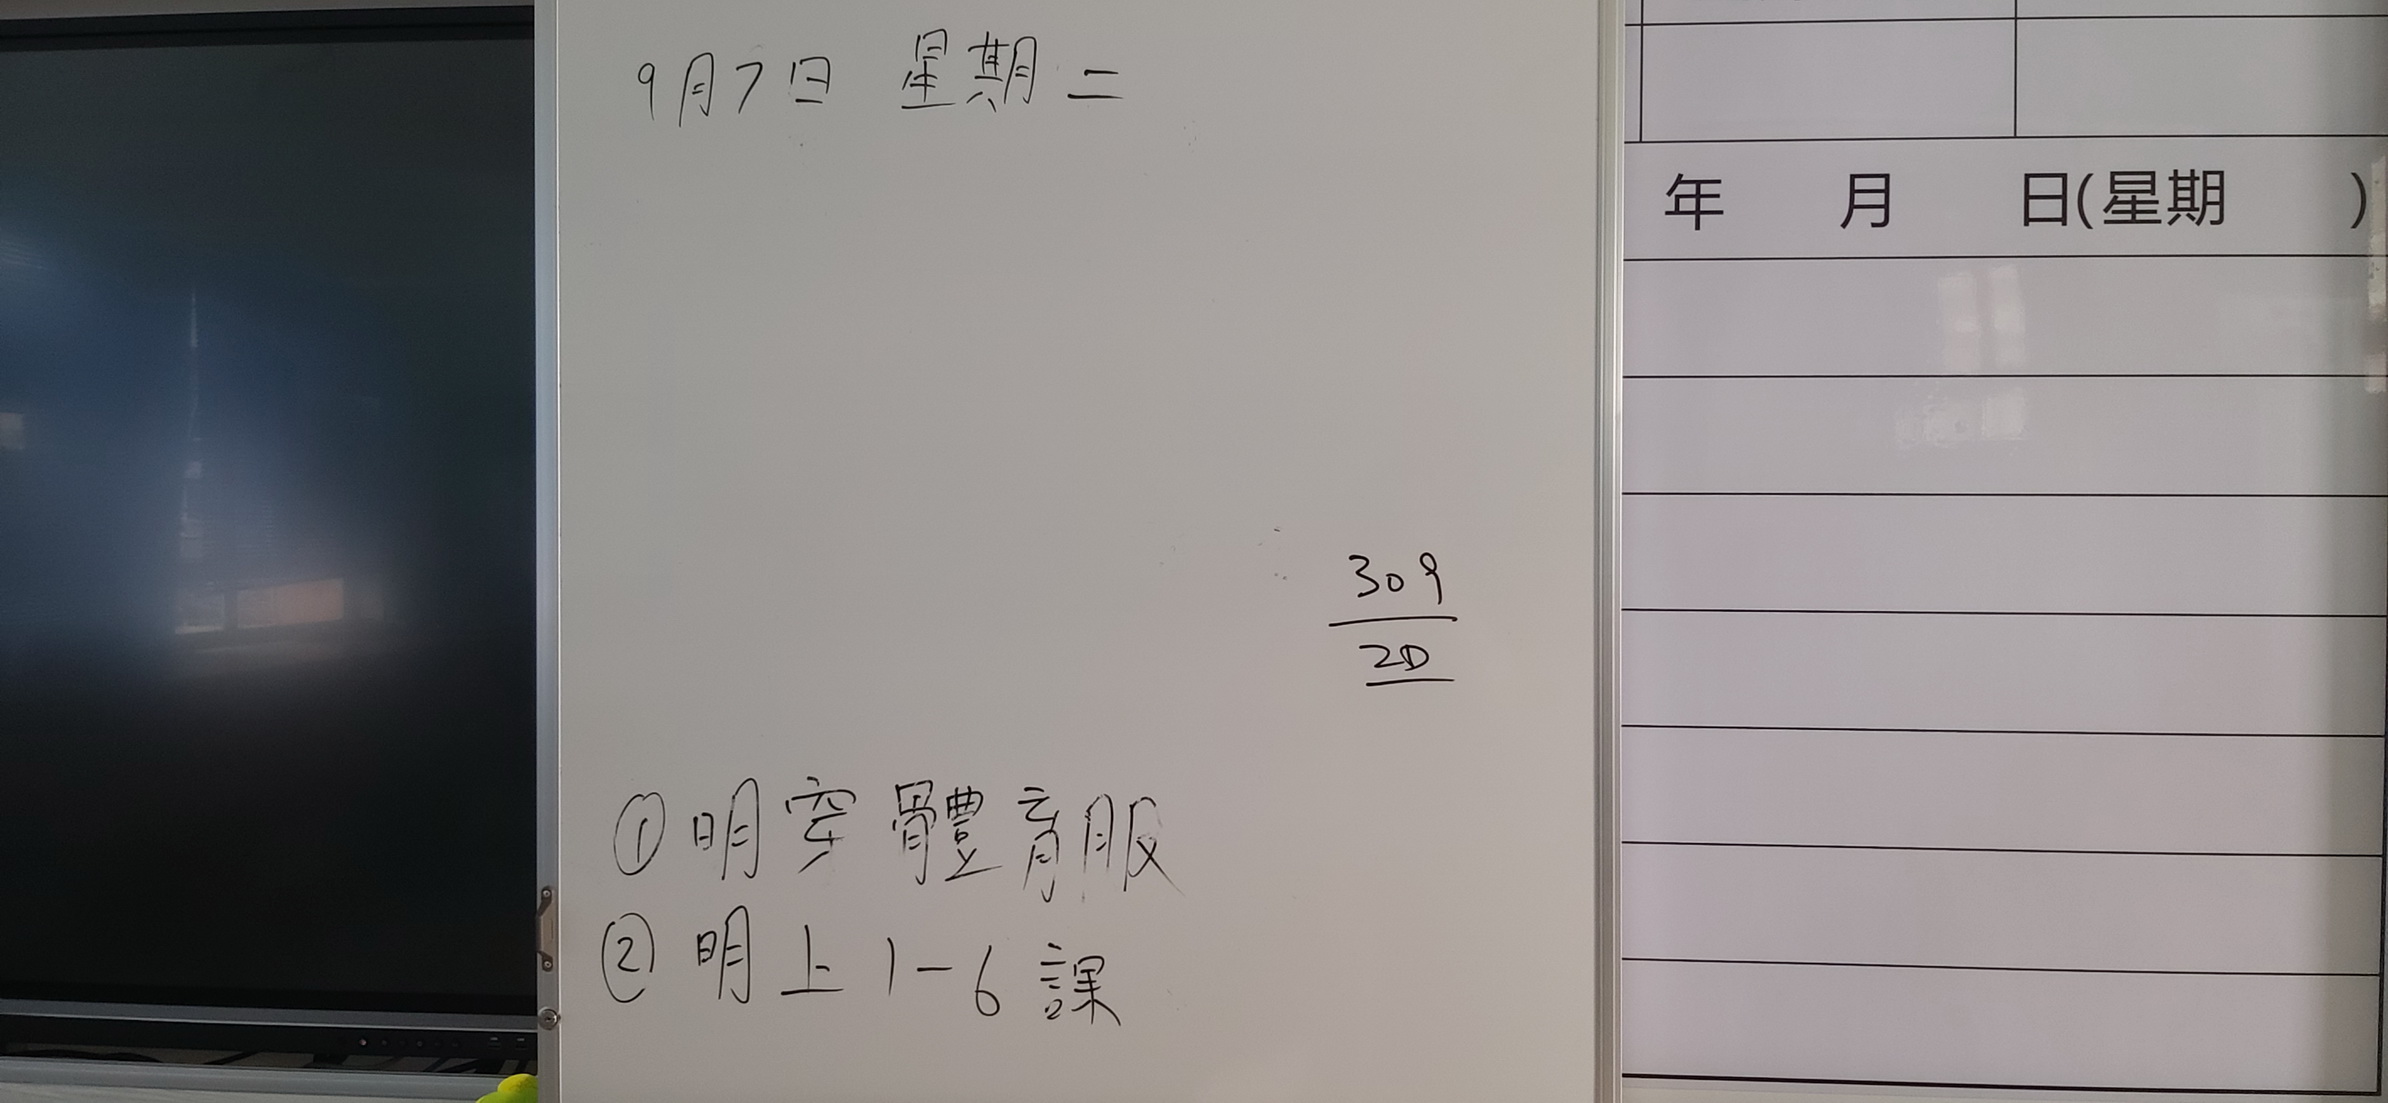 9月7日 星期二
年 月 日(星期 )
309
2D
① 明穿體育服
② 明上1-6課